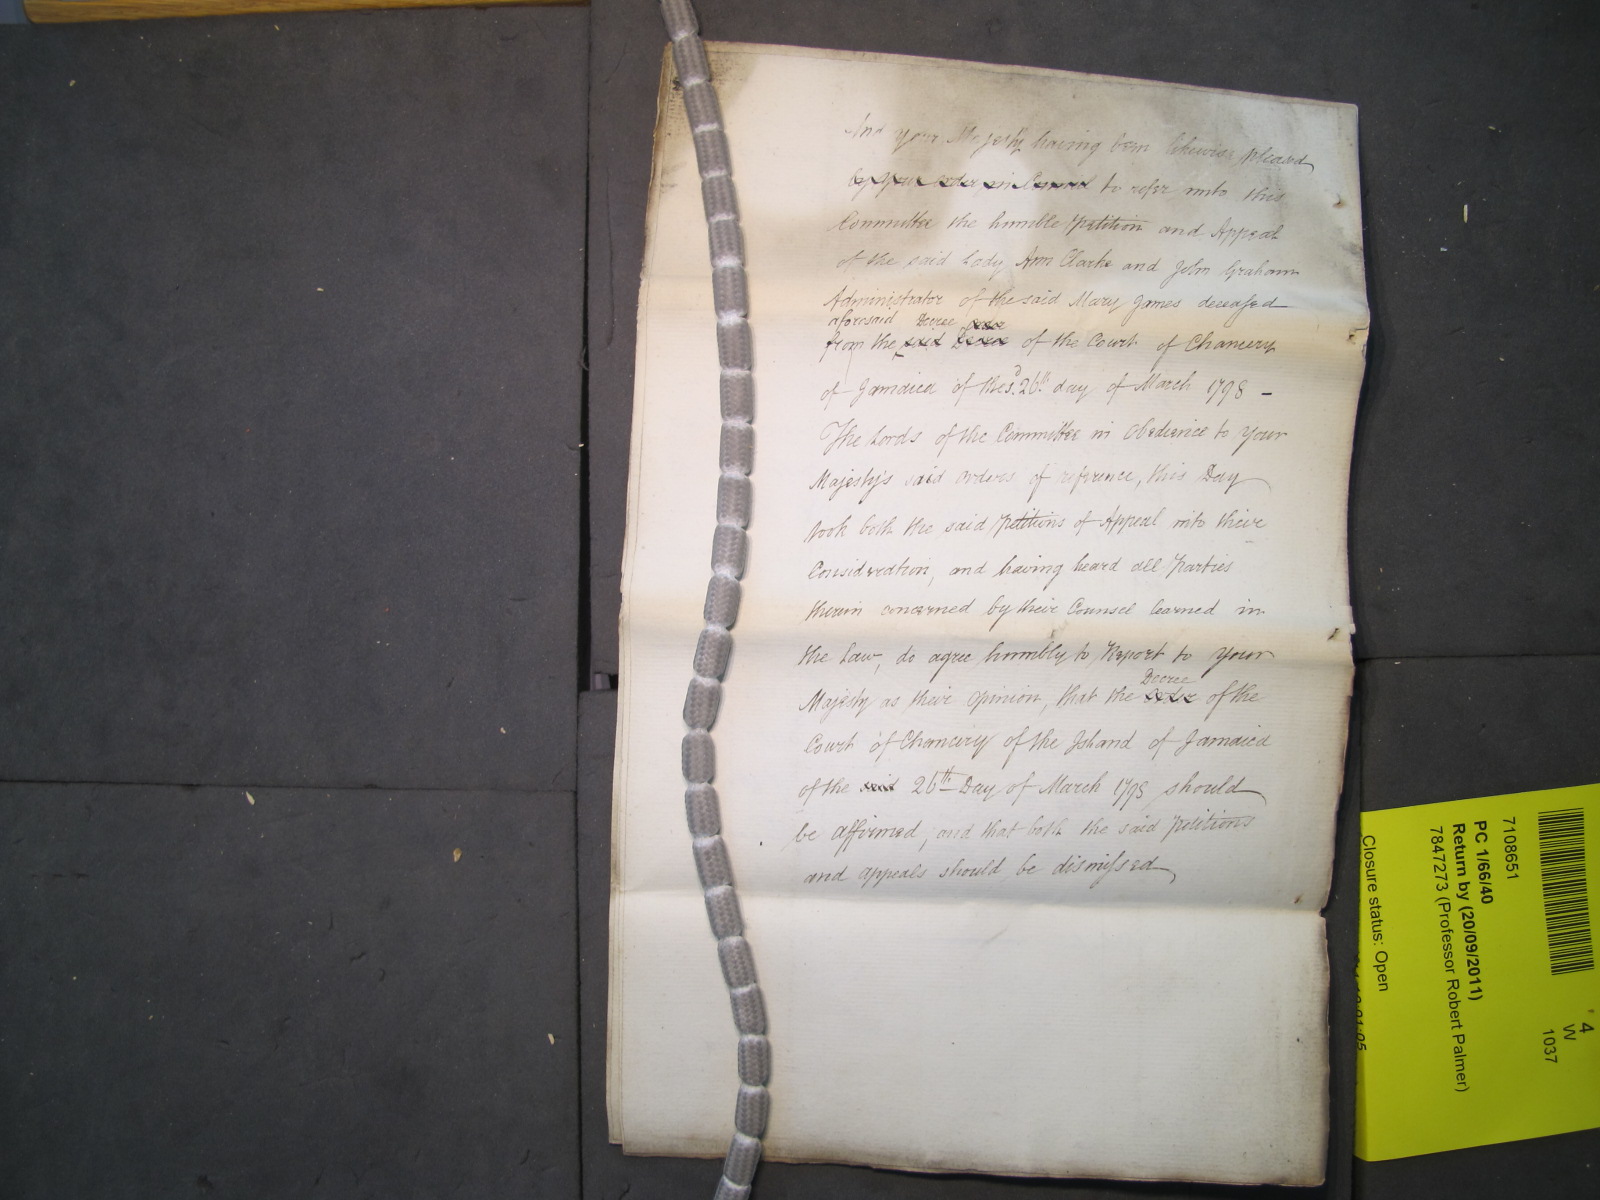 And your Majesty having been likewise pleased
by your order in Council to refer unto this
Committee the humble Petition and Appeal
of the said Lady Ann Clarke and John Graham
Administrator of the said Mary James deceased
aforesaid Decree order
from the said Decree of the Court of Chancery
of Jamaica of the sd. 26th day of March 1798 -
The Lords of the Committee in obedience to Your
Majesty's said orders of reference, this Day
took both the said Petitions of Appeal into their
Consideration, and having heard all Parties
therein concerned by their Counsel learned in
the Law, do agree humbly to Report to Your
Decree
Majesty as their opinion, that the order of the
Court of Chancery of the Island of Jamaica
of the said 26th Day of March 1798 should
be affirmed, and that both the said Petitions
and appeals should be dismissed
7108651
PC 1/66/40
Return by (20/09/2011)
7847273 (Professor Robert Palmer)
Closure status: Open
4
W
1037